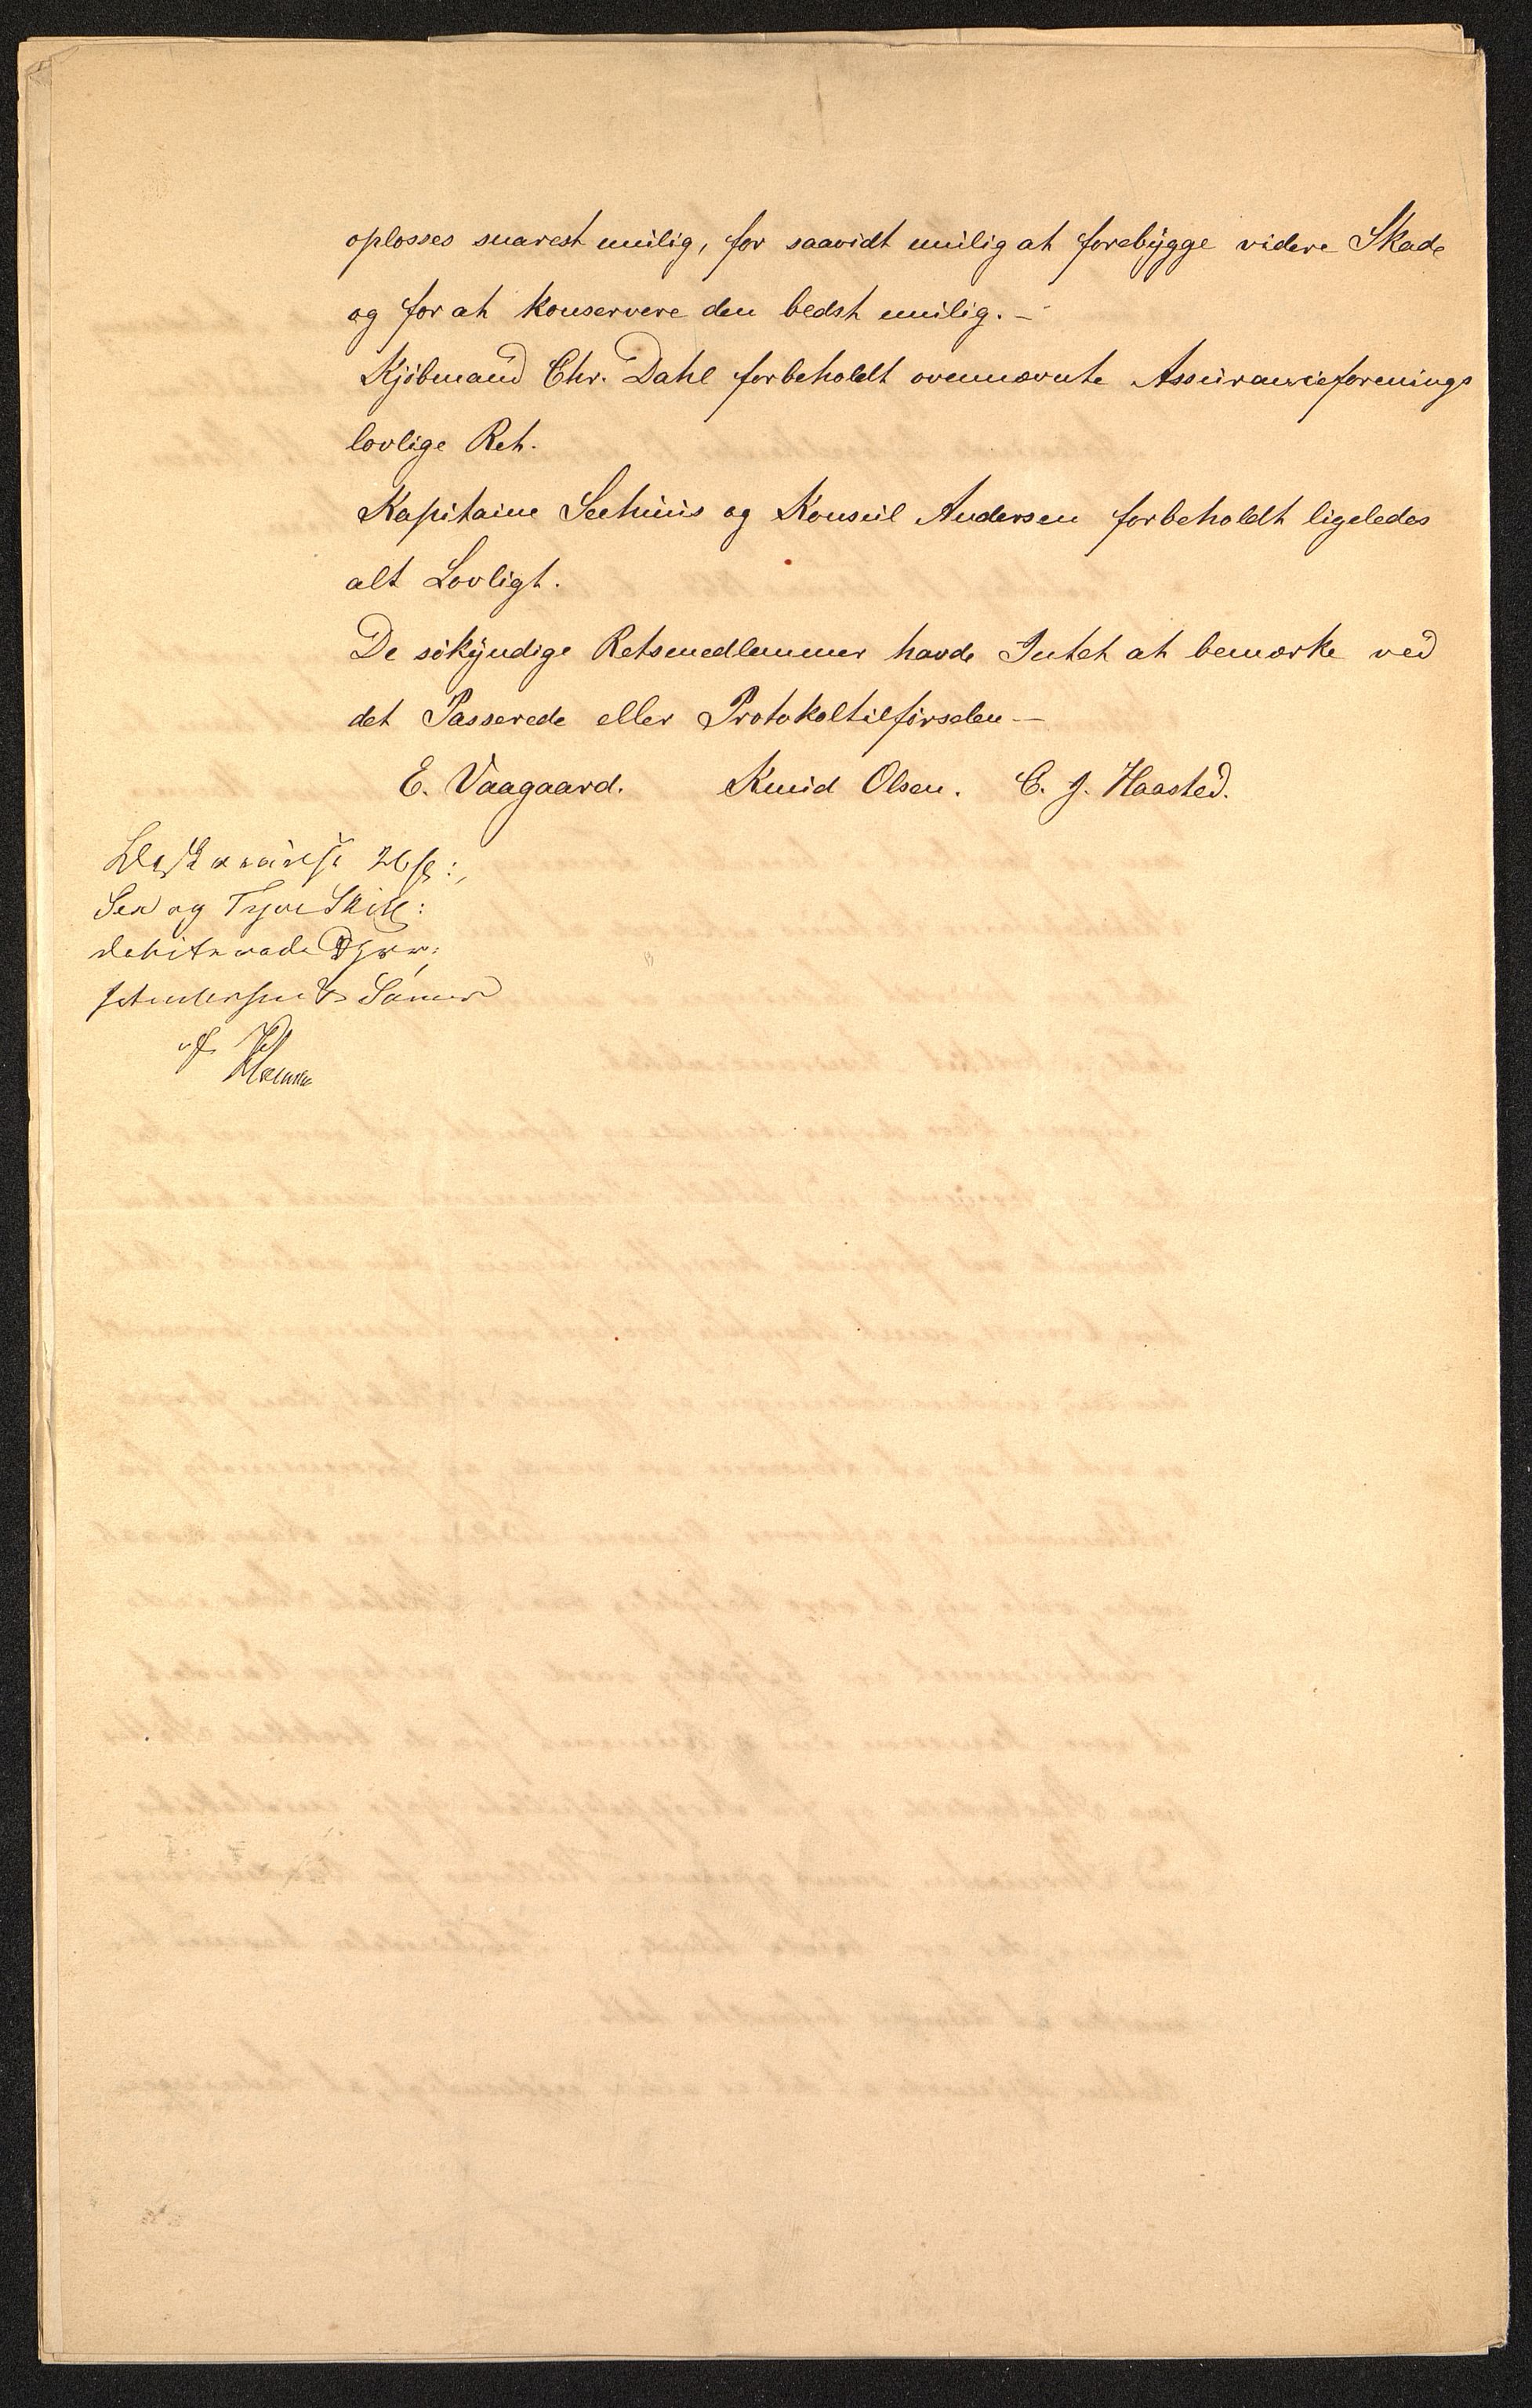 oplosses snarest muilig, for saavidt muilig at forebÿgge videre Skade
og for at konservere den bedst muilig. –
Kjöbmand Chr. Dahl forbeholdt ovennævnte Assuranceforenings
lovlige Ret.
Kapitaine Seehuus og Konsul Andersen forbeholdt ligeledes
alt Lovligt.
De sökÿndige Retsmedlemmer havde Intet at bemærke ved
det Passerede eller Protokoltilförselen —
E. Vaagaard. Knud Olsen. C. J. Haasted.
26
Sex og Tyve Skill:
debiterede
Andersen & Sönner